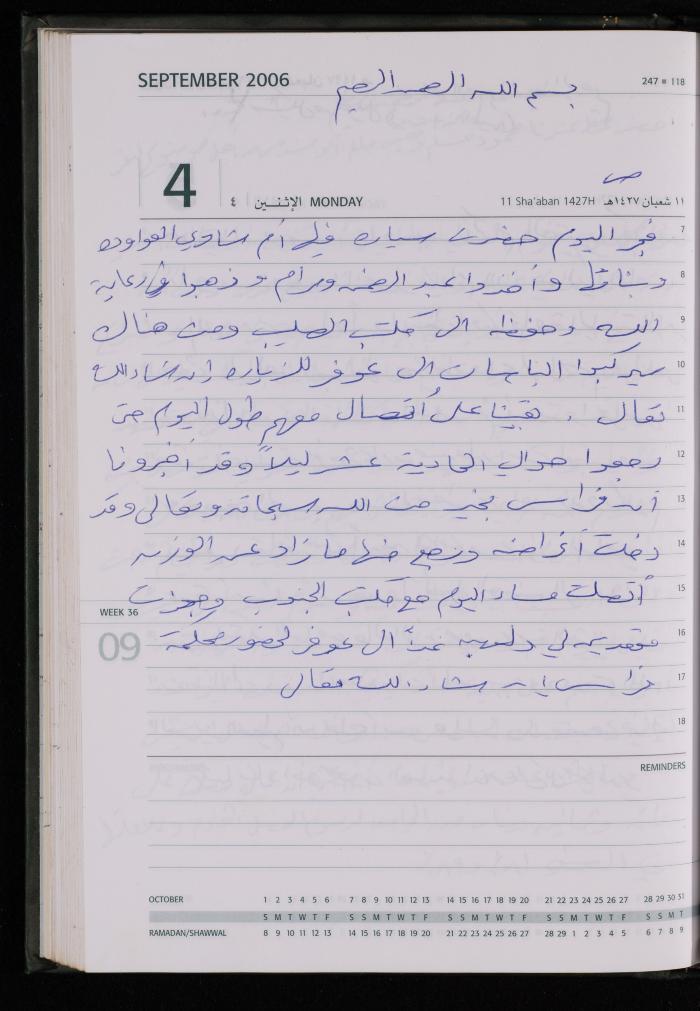 SEPTEMBER 2006
بسم الله الرحمن الرحيم
247 ■ 118
4
٤ الإثنـــين MONDAY
11 Sha'aban 1427H ١١ شعبان ١٤٢٧هـ
7 فجر اليوم حضرت سياره في أم شاوي العواوده
8 وأخذوا عبد الرحمن ومرام وذهبوا في رعاية
9 الله وحفظه الى مكتب الصليب ومن هناك
10 سيركبوا الباصات الى عوفر للزياره إن شاء الله
11 تعالى . بقينا على أتصال معهم طول اليوم حتى
12 رجعوا حوالي الحادية عشر ليلاً وقد أخبرونا
13 أن فراس بخير من الله سبحانه وتعالى وقد
14 دخلت أغراضه ورجع منها ما زاد عن الوزن
15 أتصلت مساء اليوم مع مكتب الجنوب وحجزت
WEEK 36
09
16 مقعدين لي و غداً الى عوفر لحضور محكمة
17 فراس إن شاء الله تعالى
18
REMINDERS
OCTOBER 1 2 3 4 5 6 7 8 9 10 11 12 13 14 15 16 17 18 19 20 21 22 23 24 25 26 27 28 29 30 31
S M T W T F S S M T W T F S S M T W T F S S M T W T F S S M T
RAMADAN/SHAWWAL 8 9 10 11 12 13 14 15 16 17 18 19 20 21 22 23 24 25 26 27 28 29 1 2 3 4 5 6 7 8 9